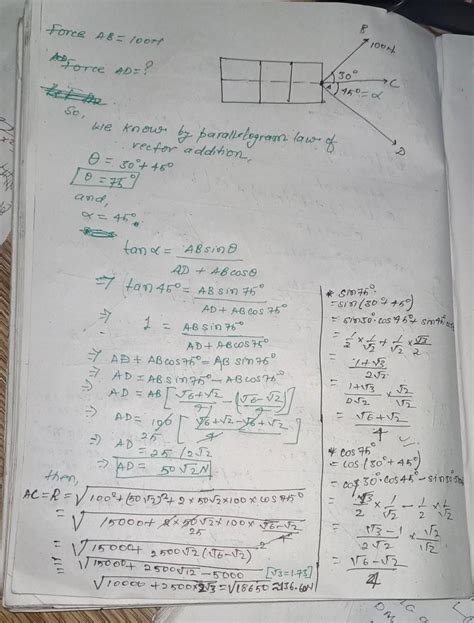 Force AB = 100N
Force AD = ?
So,
We know by parallelogram law of
vector addition,
θ = 30° + 45°
θ = 75°
and,
α = 45°
B
100N
30°
C
A
45° = α
D
tanα = ABsinθ / AD + ABcosθ
⇒ tan45° = ABsin75° / AD + ABcos75°
⇒ 1 = ABsin75° / AD + ABcos75°
⇒ AD + ABcos75° = AB sin75°
⇒ AD = ABsin75° - ABcos75°
⇒ AD = AB [ √6+√2 / 4 - (√6-√2) / 4 ]
⇒ AD = 100 [ √6+√2-√6+√2 / 4 ]
25
⇒ AD = 25 (2√2)
⇒ AD = 50√2N
then,
AC = R = √100² + (50√2)² + 2 × 50√2 × 100 × cos75°
= √15000 + 2×50√2 × 100 × √6-√2 / 4
25
= √15000 + 2500√2 (√6-√2)
= √15000 + 2500√12 - 5000 [√3 = 1.73]
√10000 + 2500×2√3 = √18650 = 136.60N
* sin75°
= sin(30° + 45°)
= sin30°·cos45° +
= 1/2 × 1/√2 + 1/√2 × √3/2
= 1+√3 / 2√2
= 1+√3 / 2√2 × √2/√2
= √6+√2 / 4
* cos75°
= cos(30° + 45°)
= cos30°·cos45° -
= √3/2 × 1/√2 - 1/2 × 1/√2
= √3-1 / 2√2 × √2/√2
= √6-√2 / 4